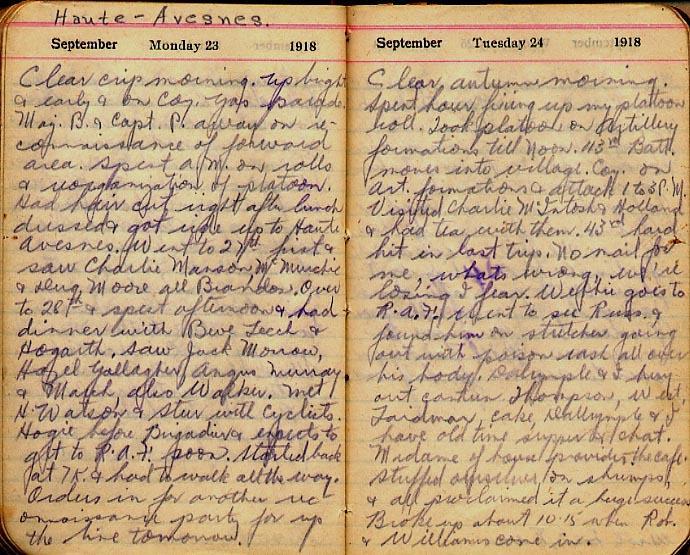 Haute-Avesnes.
September Monday 23 1918
Clear crisp morning. Up bright
& early & on Coy. Gas parade.
Maj. B. & Capt. P. away on re-
connaissance of forward
area. Spent A.M. on rolls
& reorganization of platoon.
Had hair cut right after lunch
dressed & got ride up to Haute
Avesnes. Went to 27th first &
saw Charlie Manson, McMurchie
& Doug Moore all Brandon. Over
to 28th & spent afternoon & had
dinner with Bewe Cecil &
Hogarth, saw Jack Morrow,
Hazel Gallagher, Angus Murray
& March, also Walker. Met
H. Watson & Stew with Cyclists.
Hogie before Brigadier & expects to
get to R.A.F. soon. Started back
at 7K & had to walk all the way.
Orders in for another rec
onnaissance party for up
the line tomorrow.
September Tuesday 24 1918
Clear autumn morning.
Spent hour fixing up my platoon
roll. Took platoon on Artillery
formations till Noon. 43rd Batt.
moves into village. Coy. on
art. formations & attack 1 to 3 P.M.
Visited Charlie McIntosh & Holland
& had tea with them. 43rd hard
hit in last trip. No mail for
me, whats wrong, we're
losing I fear. goes to
R.A.F. went to see Russ. &
found him on stretcher going
out with poison rash all over
his body. Dalrymple & I buy
out canteen Thompson,
cake, Dalrymple & I
have old time supper & chat.
Madame of house provides the café.
Stuffed ourselves on shrimps,
& all proclaimed it a huge success
Broke up about 10.15 when Rob.
& Williams come in.